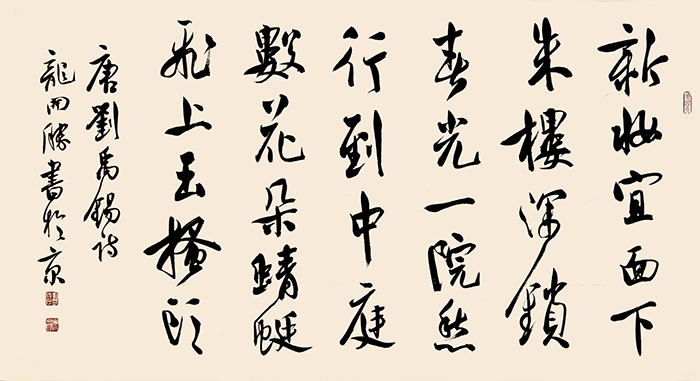 新妝宜面下
朱樓深鎖
春光一院愁
行到中庭
數花朵蜻蜓
飛上玉搔頭
唐劉禹錫詩
龍開勝書於京